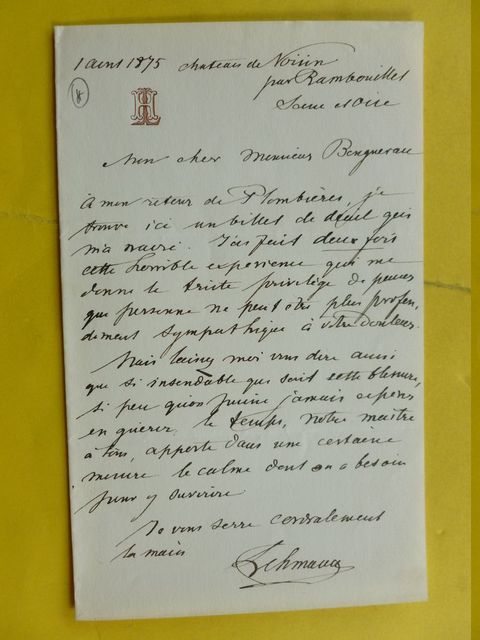 1 avril 1875 chateau de Voisin
par Rambouillet
Seine et Oise
HL
Mon cher Monsieur Bouguereau
À mon retour de Plombières, je
trouve ici un billet de deuil qui
m'a navré. J'ai fait deux fois
cette horrible experience qui me
donne le triste privilège de penser
que personne ne peut être plus profon-
dement sympathique à votre douleur.
Mais laissez moi vous dire aussi
que si insondable que soit cette blessure,
si peu qu'on puisse jamais esperer
en guerir, le temps, notre maître
à tous, apporte dans une certaine
mesure le calme dont on a besoin
pour y survivre
Je vous serre cordialement
la main
Lehmann